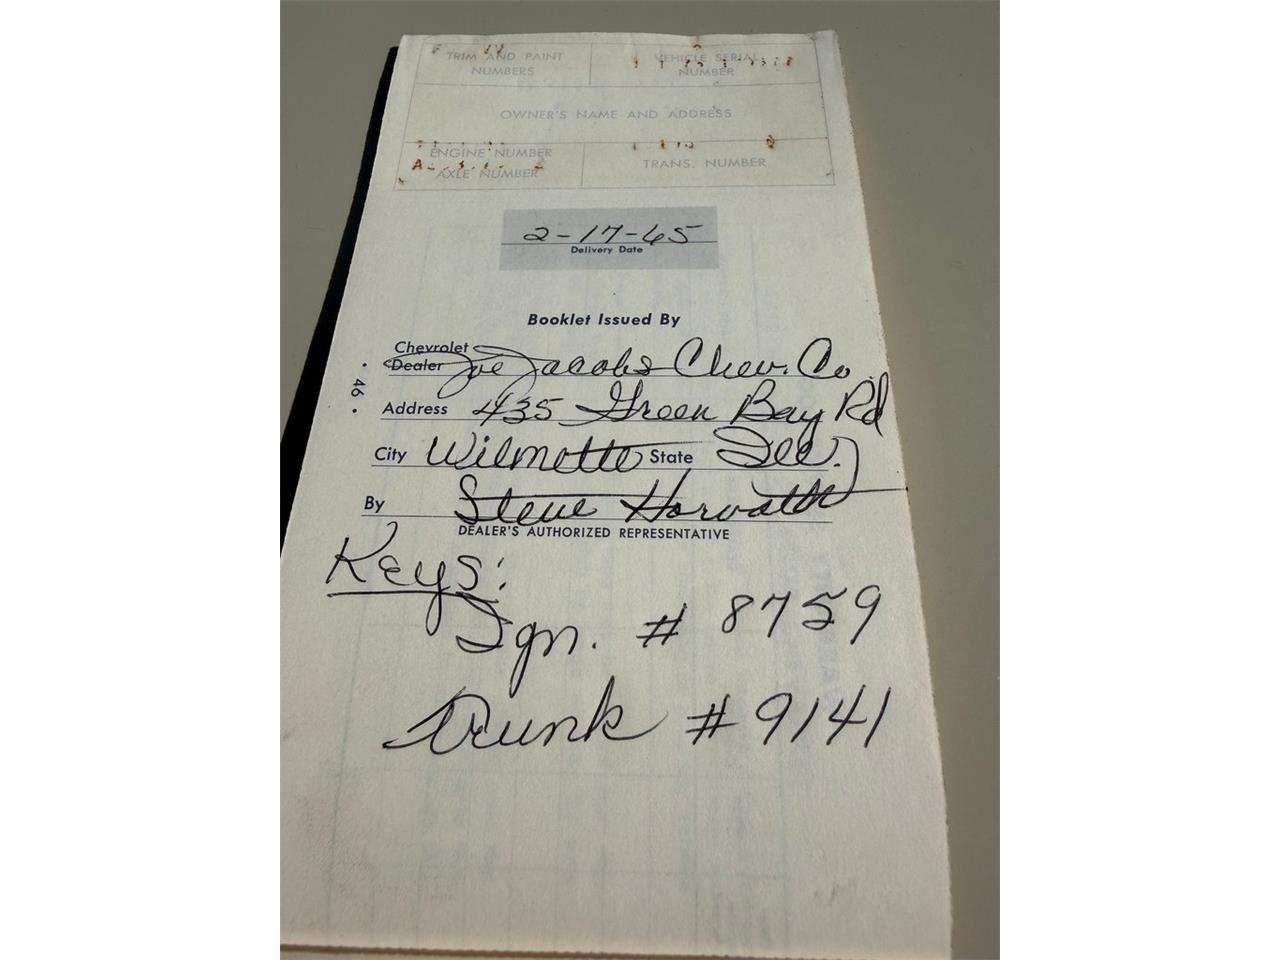 TRIM AND PAINT NUMBERS VEHICLE SERIAL NUMBER
OWNER'S NAME AND ADDRESS
ENGINE NUMBER TRANS. NUMBER
AXLE NUMBER
2-17-65
Delivery Date
Booklet Issued By
Chevrolet
Dealer Joe Jacobs Chev. Co.
• 46 •
Address 435 Green Bay Rd
City Wilmette State Ill.
By Steve Horvath
DEALER'S AUTHORIZED REPRESENTATIVE
Keys:
Ign. # 8759
Trunk # 9141